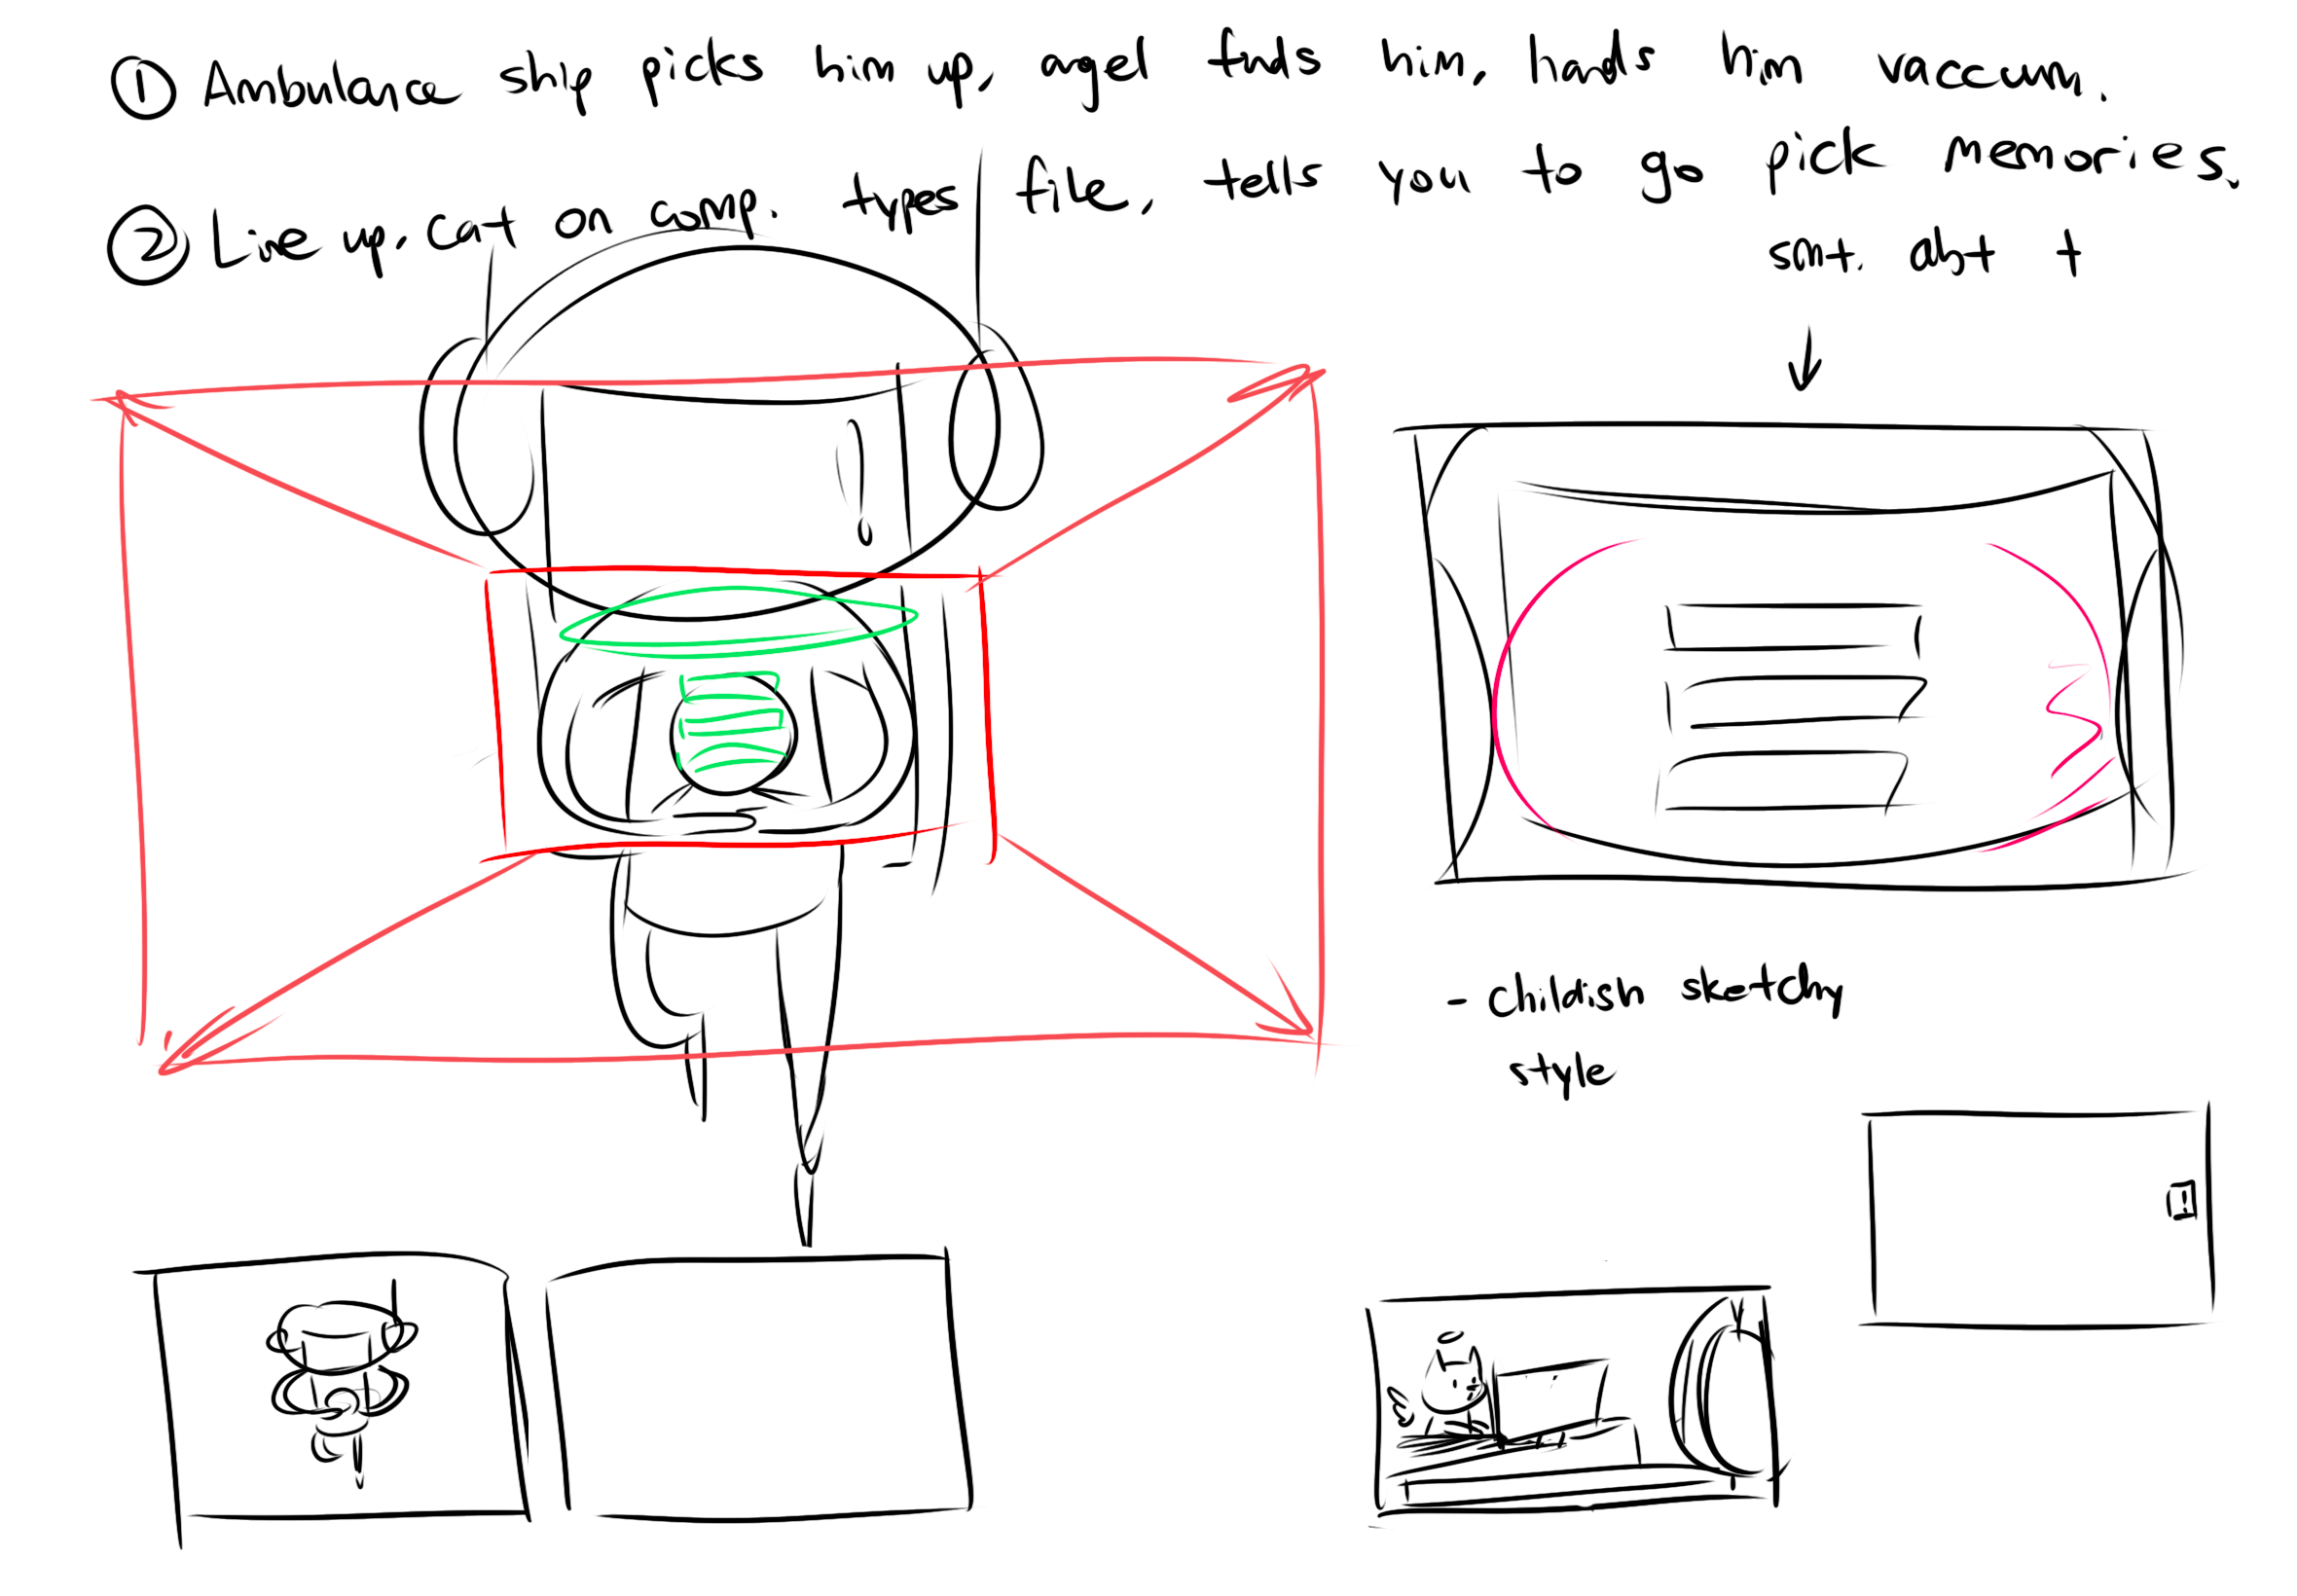 ① Ambulance ship picks him up, angel finds him, hands him vaccum.
② Line up, cat on comp. types file, tells you to go pick memories.
smt. abt +
- childish sketchy
style